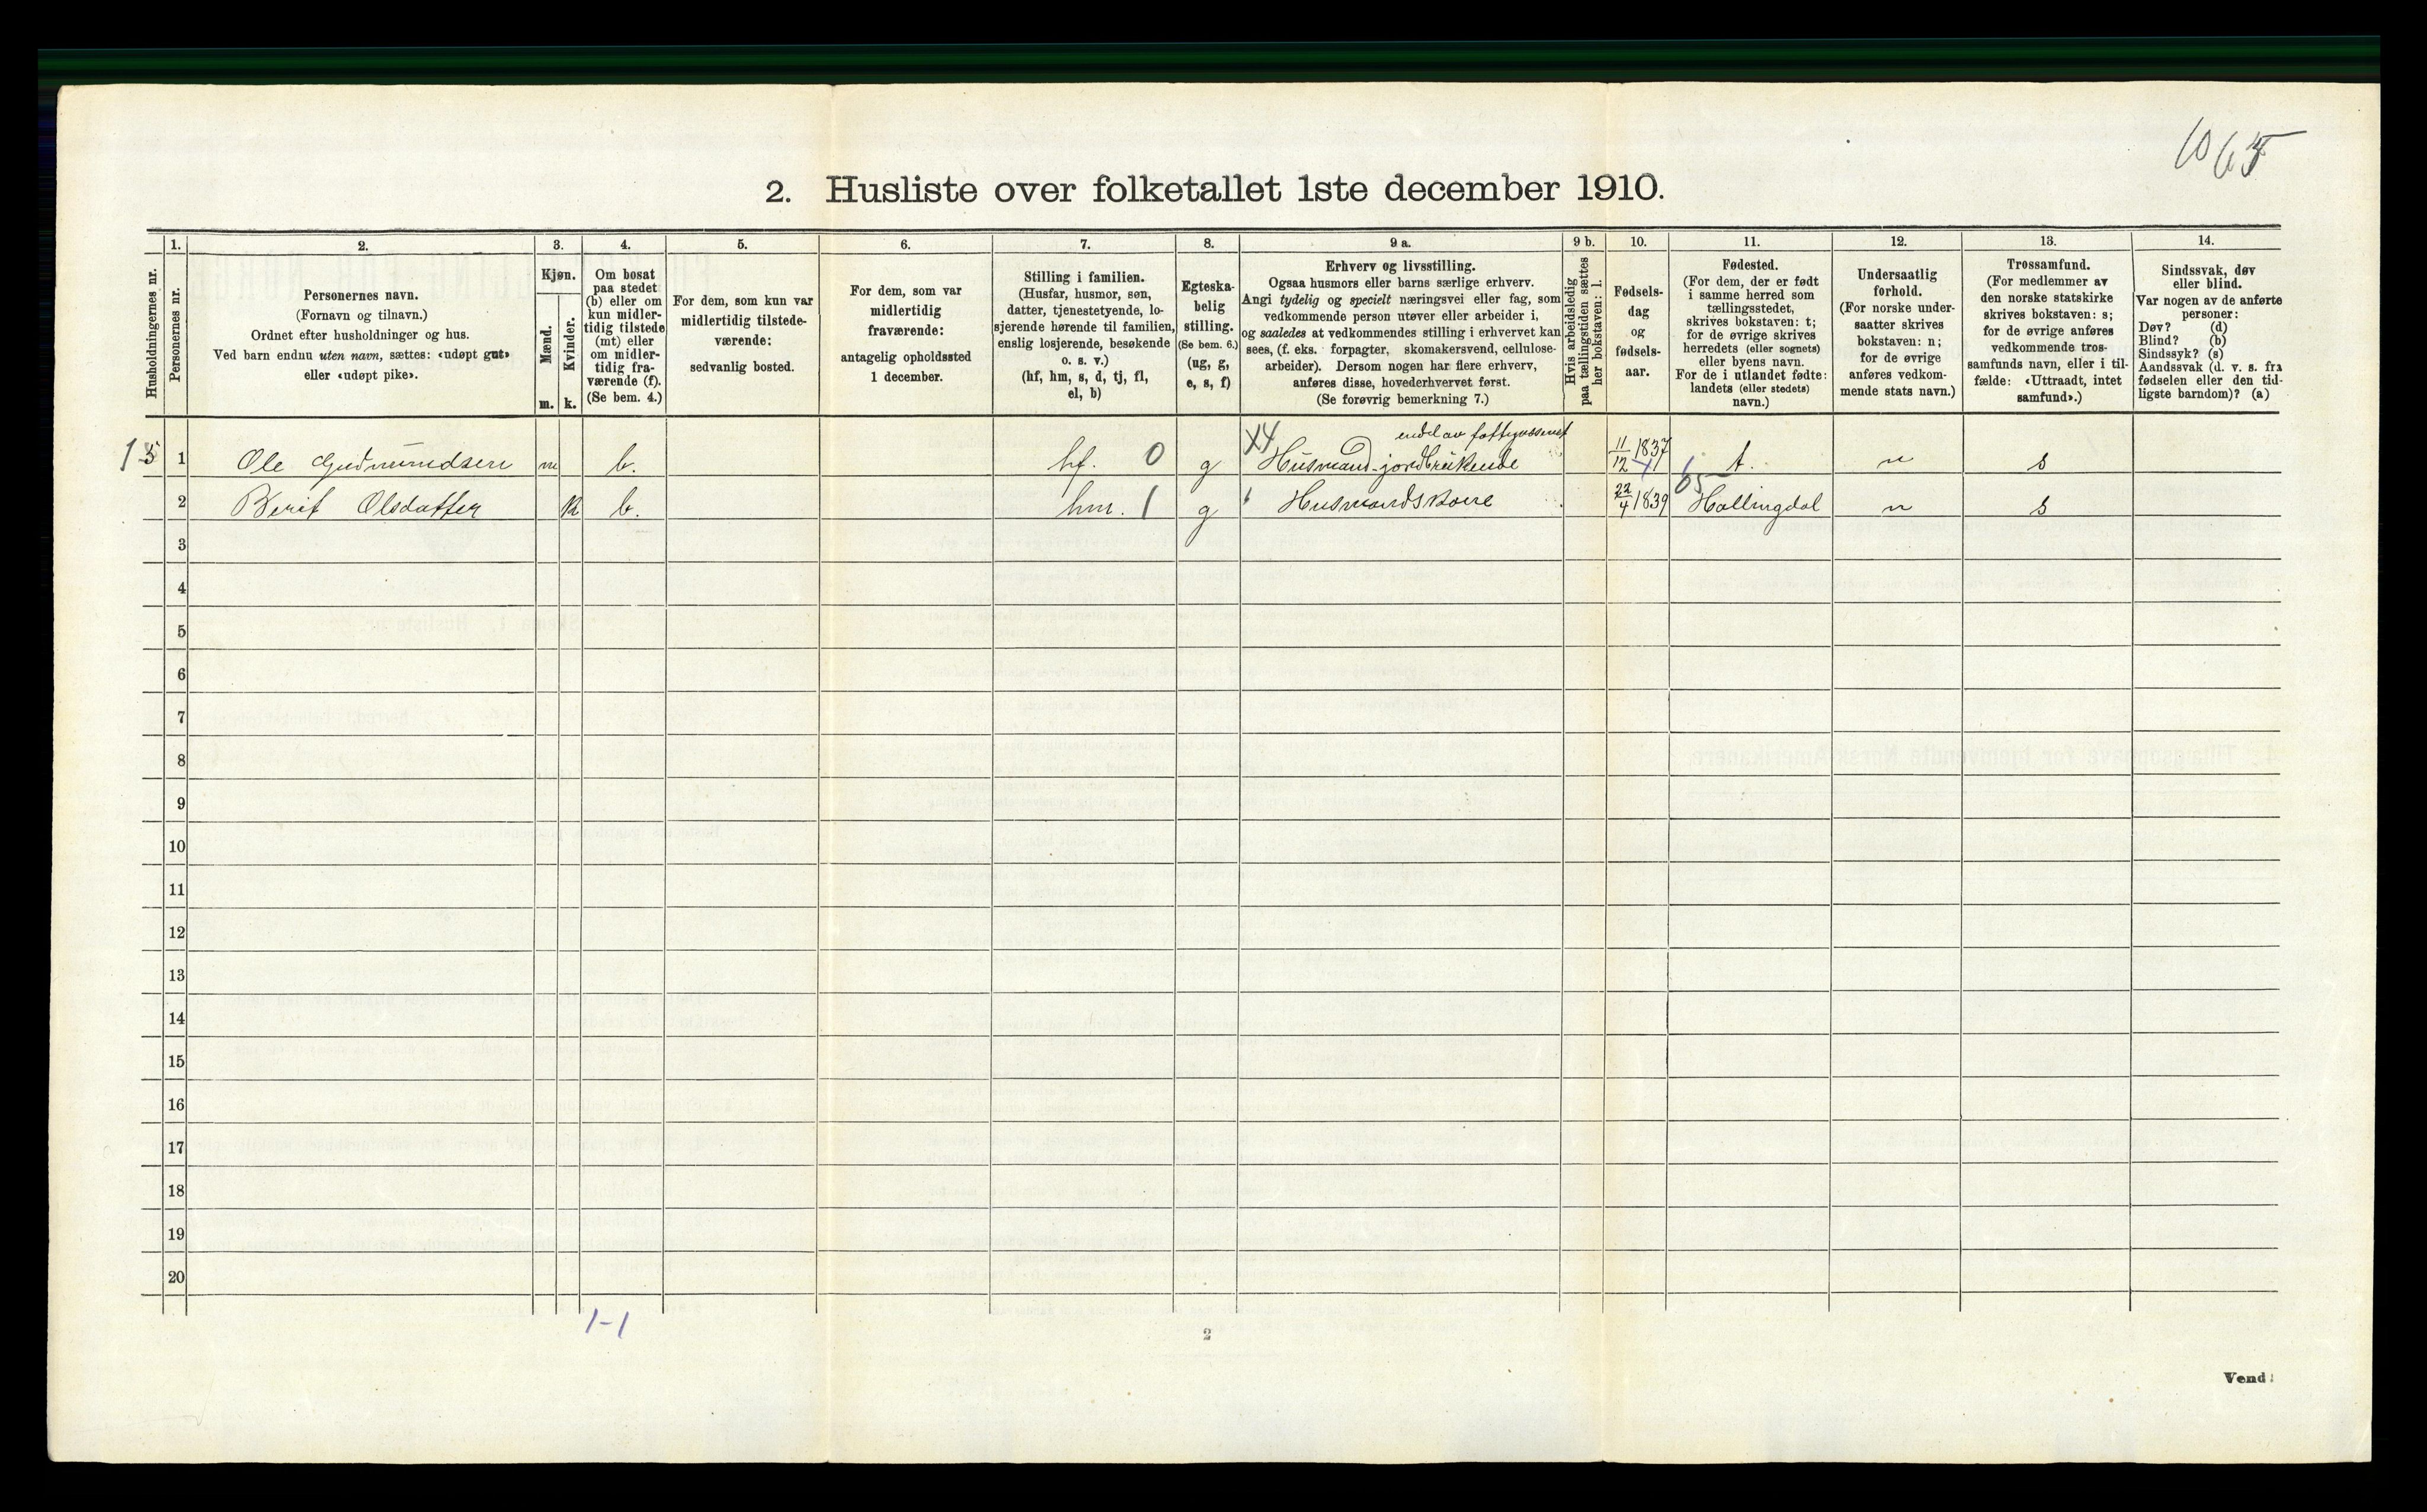 1065
2. Husliste over folketallet 1ste december 1910.
Husholdningernes nr.
1.
Personernes nr.
2.
Personernes navn.
(Fornavn og tilnavn.)
Ordnet efter husholdninger og hus.
Ved barn endnu uten navn, sættes: «udøpt gut»
eller «udøpt pike».
3.
Kjøn.
Mænd.
Kvinder.
m.
k.
4.
Om bosat
paa stedet
(b) eller om
kun midler-
tidig tilstede
(mt) eller
om midler-
tidig fra-
værende (f).
(Se bem. 4.)
5.
For dem, som kun var
midlertidig tilstede-
værende:
sedvanlig bosted.
6.
For dem, som var
midlertidig
fraværende:
antagelig opholdssted
1 december.
7.
Stilling i familien.
(Husfar, husmor, søn,
datter, tjenestetyende, lo-
sjerende hørende til familien,
enslig losjerende, besøkende
o. s. v.)
(hf, hm, s, d, tj, fl,
el, b)
8.
Egteska-
belig
stilling.
(Se bem. 6.)
(ug, g,
e, s, f)
9 a.
Erhverv og livsstilling.
Ogsaa husmors eller barns særlige erhverv.
Angi tydelig og specielt næringsvei eller fag, som
vedkommende person utøver eller arbeider i,
og saaledes at vedkommendes stilling i erhvervet kan
sees, (f. eks. forpagter, skomakersvend, cellulose-
arbeider). Dersom nogen har flere erhverv,
anføres disse, hovederhvervet først.
(Se forøvrig bemerkning 7.)
9 b.
Hvis arbeidsledig
paa tællingstiden sættes
her bokstaven: l.
10.
Fødsels-
dag
og
fødsels-
aar.
11.
Fødested.
(For dem, der er født
i samme herred som
tællingsstedet,
skrives bokstaven: t;
for de øvrige skrives
herredets (eller sognets)
eller byens navn.
For de i utlandet fødte:
landets (eller stedets)
navn.)
12.
Undersaatlig
forhold.
(For norske under-
saatter skrives
bokstaven: n;
for de øvrige
anføres vedkom-
mende stats navn.)
13.
Trossamfund.
(For medlemmer av
den norske statskirke
skrives bokstaven: s;
for de øvrige anføres
vedkommende tros-
samfunds navn, eller i til-
fælde: «Uttraadt, intet
samfund».)
14.
Sindssvak, døv
eller blind.
Var nogen av de anførte
personer:
Døv? (d)
Blind? (b)
Sindssyk? (s)
Aandssvak (d. v. s. fra
fødselen eller den tid-
ligste barndom)? (a)
X4 endel av fattigvæsenet
1 Ole Gudmundsen m b. hf. 0 g Husmand-jordbrukende 11/12 1837 t. n s
65
2 Berit Olsdatter k b. hm. 1 g Husmandskone 22/4 1839 Hallingdal n s
3
4
5
6
7
8
9
10
11
12
13
14
15
16
17
18
19
20
1-1
2
Vend!